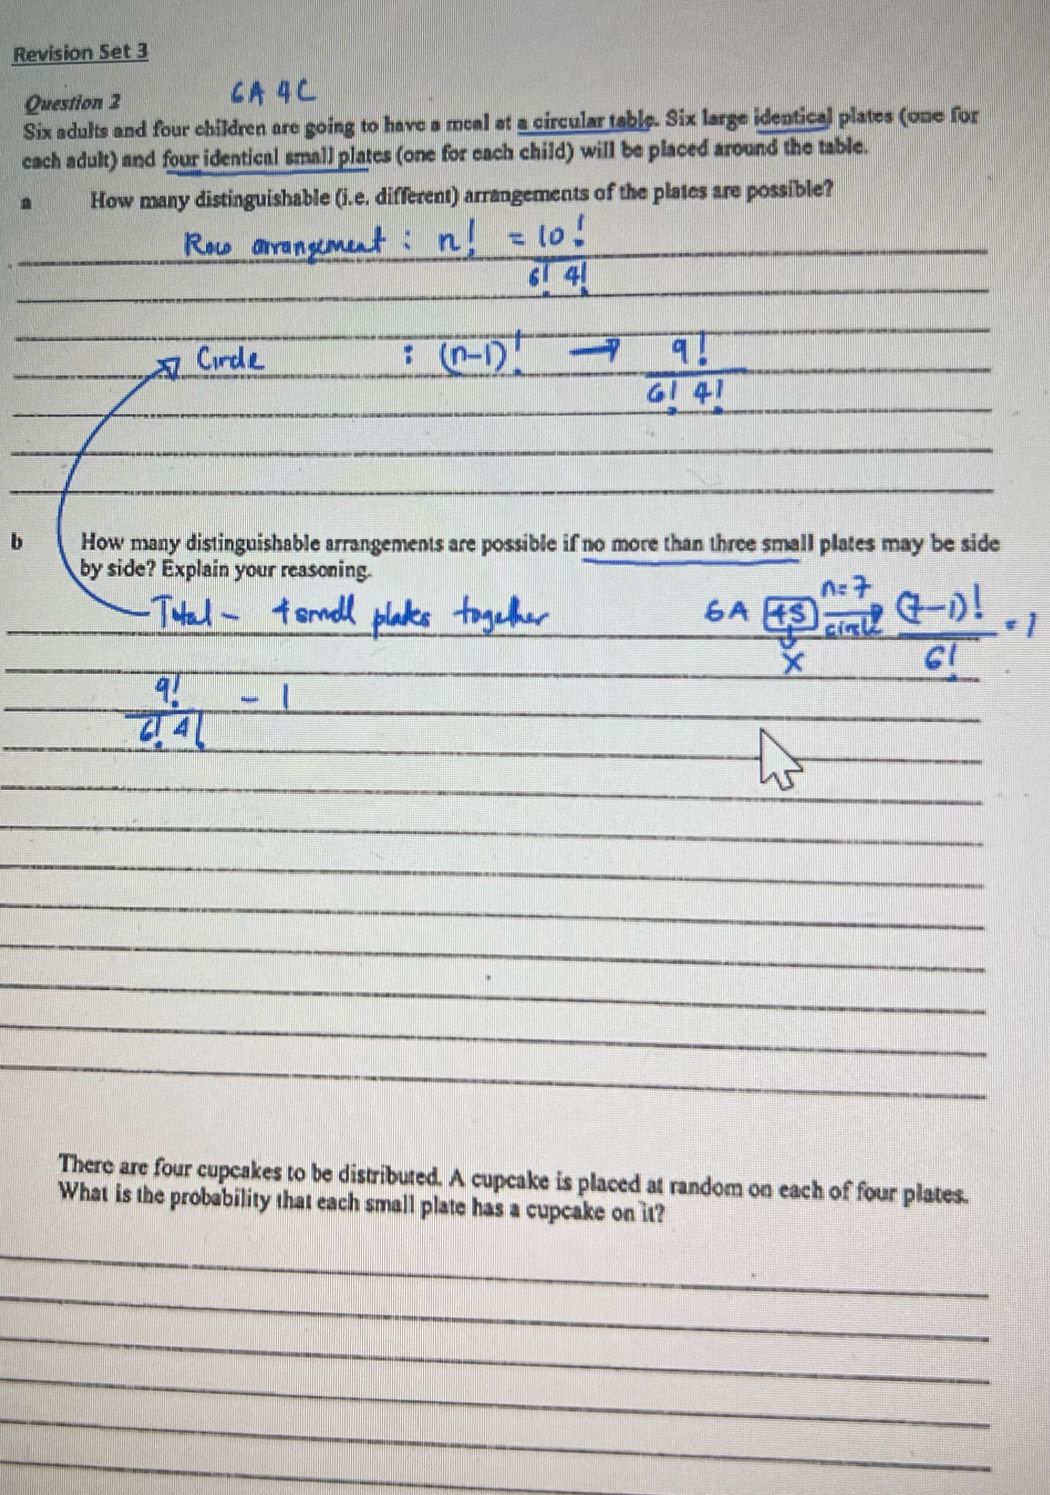 Revision Set 3
6A 4C
Question 2
Six adults and four children are going to have a meal at a circular table. Six large identical plates (one for
each adult) and four identical small plates (one for each child) will be placed around the table.
a How many distinguishable (i.e. different) arrangements of the plates are possible?
Row arrangement : n! = 10!
6! 4!
Circle : (n-1)! → 9!
6! 4!
b How many distinguishable arrangements are possible if no more than three small plates may be side
by side? Explain your reasoning.
Total - 4 small plates together 6A 4S n=7 circle (7-1)! = 1
x 6!
9! - 1
6! 4!
There are four cupcakes to be distributed. A cupcake is placed at random on each of four plates.
What is the probability that each small plate has a cupcake on it?